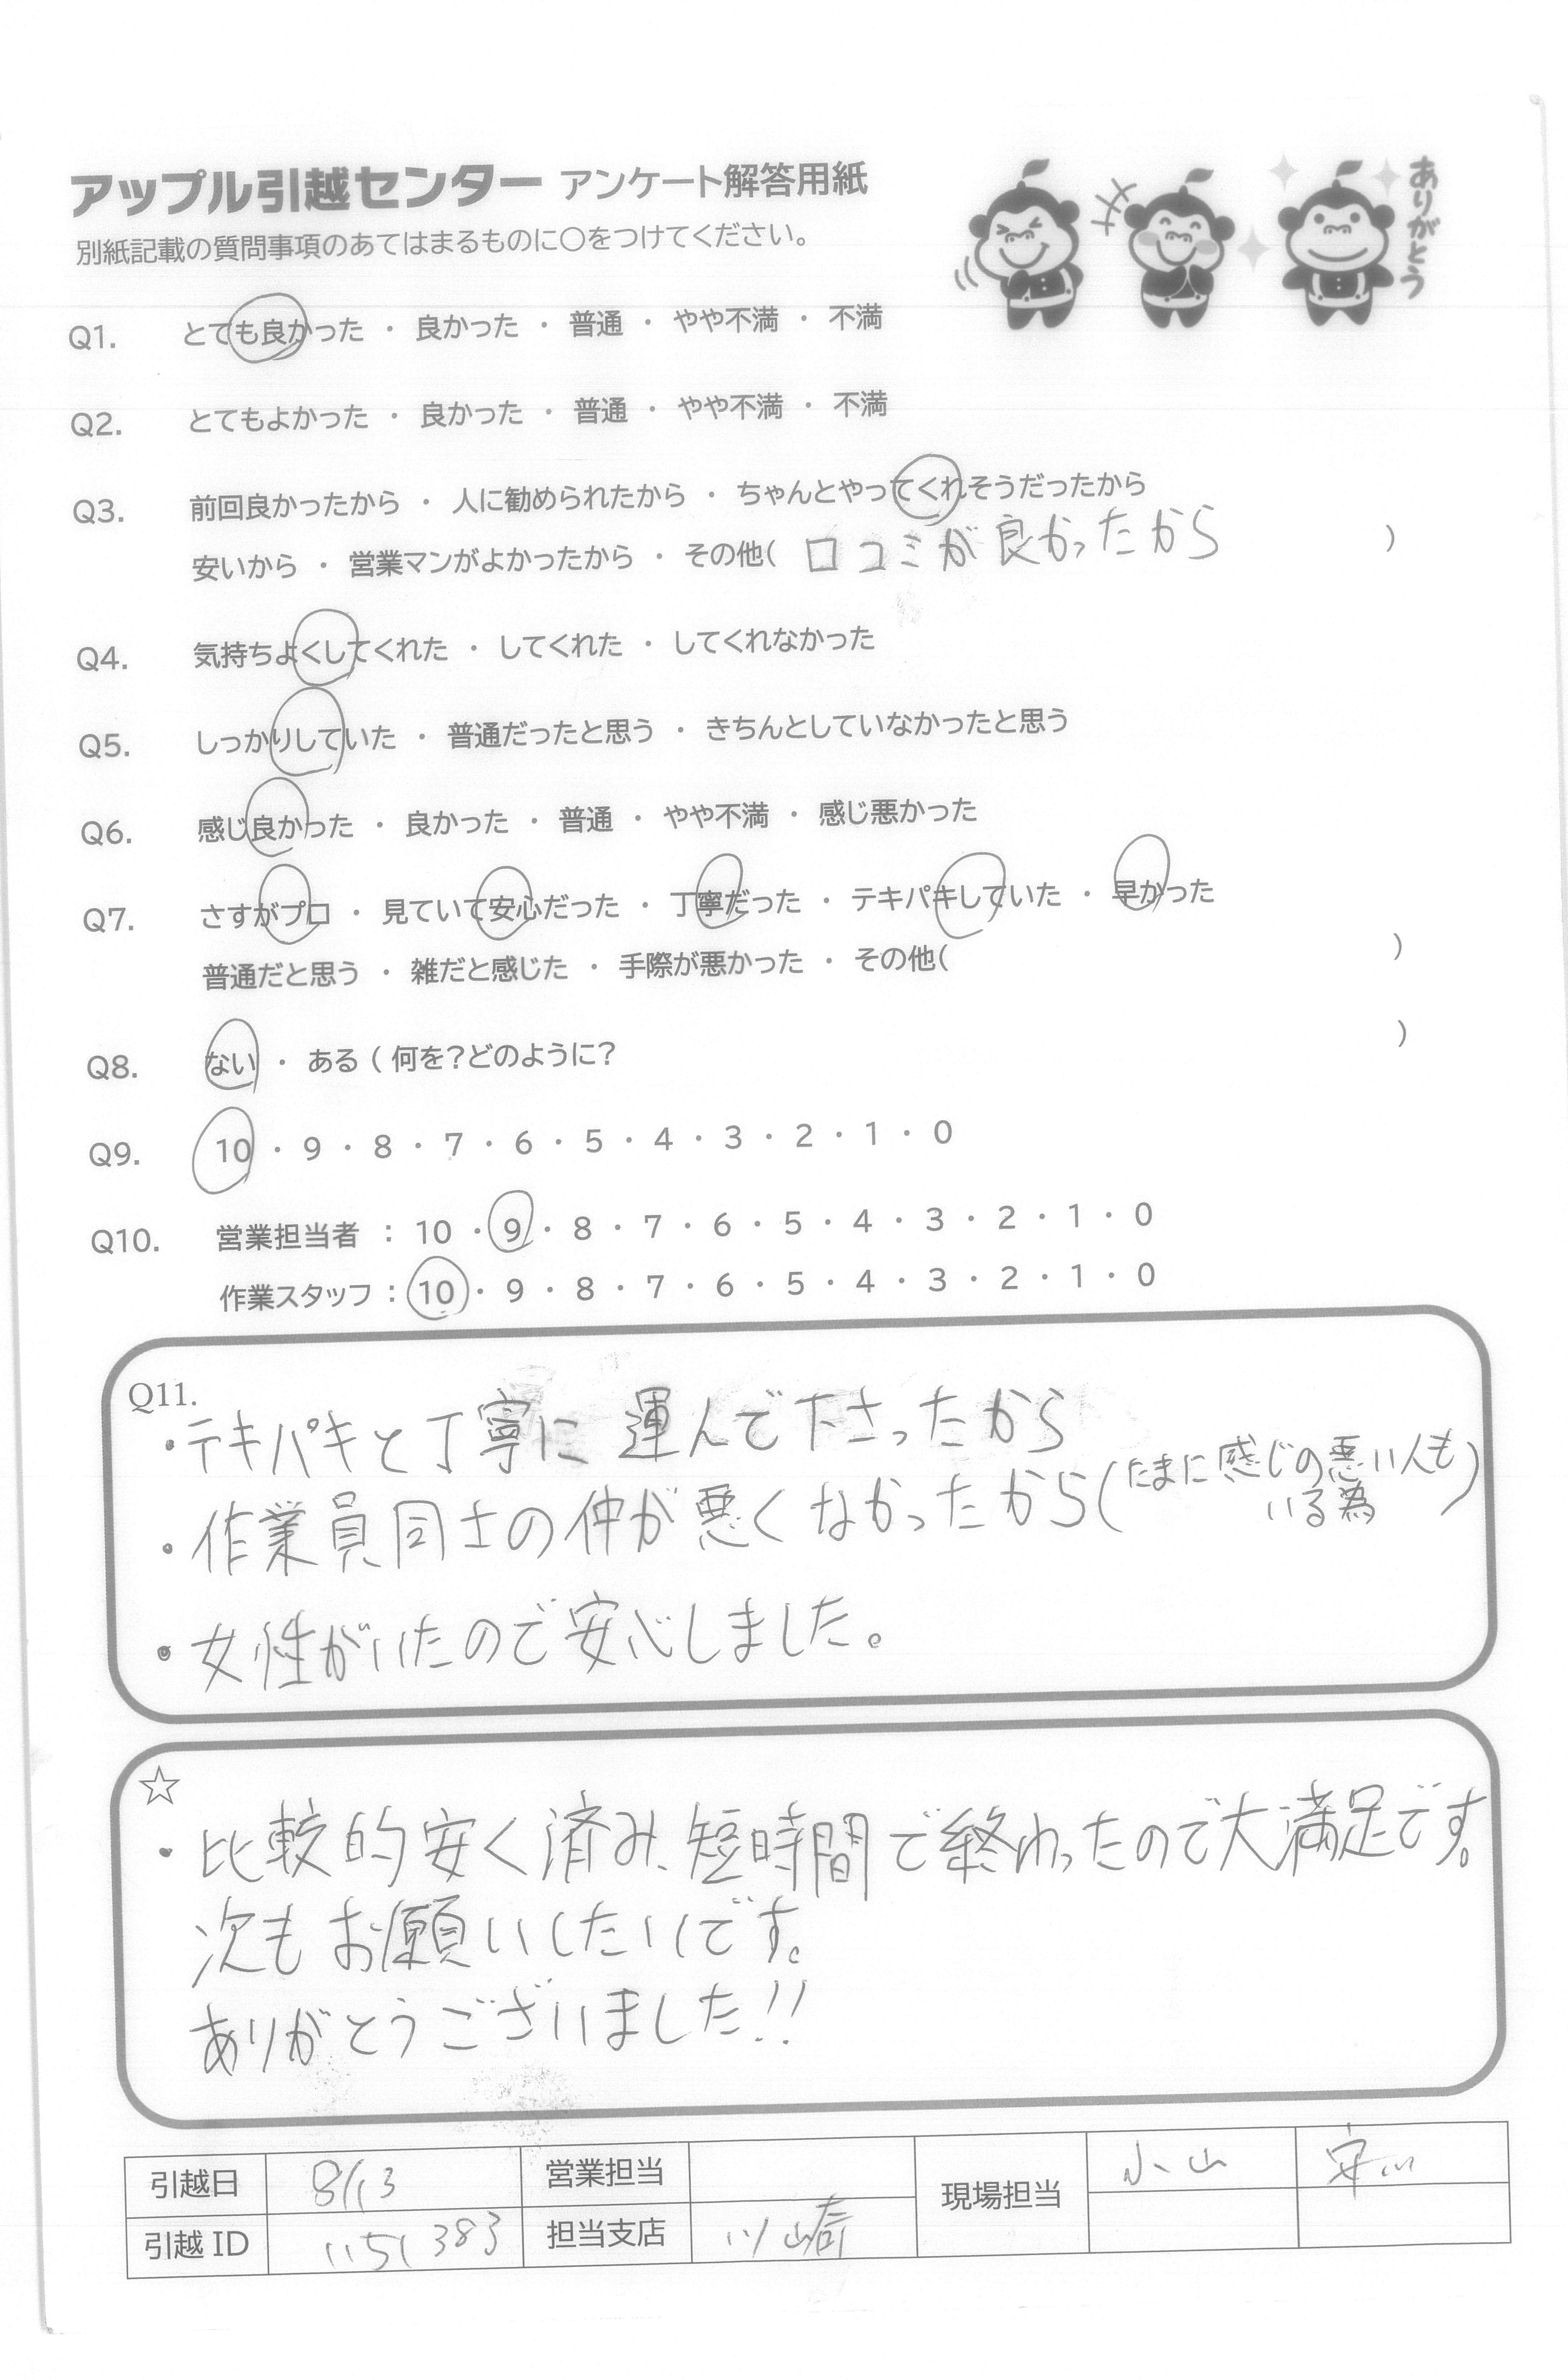 アップル引越センター アンケート解答用紙
ありがとう
別紙記載の質問事項のあてはまるものに○をつけてください。
Q1. とても良かった ・ 良かった ・ 普通 ・ やや不満 ・ 不満
Q2. とてもよかった ・ 良かった ・ 普通 ・ やや不満 ・ 不満
Q3. 前回良かったから ・ 人に勧められたから ・ ちゃんとやってくれそうだったから
安いから ・ 営業マンがよかったから ・ その他( 口コミが良かったから )
Q4. 気持ちよくしてくれた ・ してくれた ・ してくれなかった
Q5. しっかりしていた ・ 普通だったと思う ・ きちんとしていなかったと思う
Q6. 感じ良かった ・ 良かった ・ 普通 ・ やや不満 ・ 感じ悪かった
Q7. さすがプロ ・ 見ていて安心だった ・ 丁寧だった ・ テキパキしていた ・ 早かった
普通だと思う ・ 雑だと感じた ・ 手際が悪かった ・ その他( )
Q8. ない ・ ある ( 何を?どのように? )
Q9. 10 ・ 9 ・ 8 ・ 7 ・ 6 ・ 5 ・ 4 ・ 3 ・ 2 ・ 1 ・ 0
Q10. 営業担当者 : 10 ・ 9 ・ 8 ・ 7 ・ 6 ・ 5 ・ 4 ・ 3 ・ 2 ・ 1 ・ 0
作業スタッフ : 10 ・ 9 ・ 8 ・ 7 ・ 6 ・ 5 ・ 4 ・ 3 ・ 2 ・ 1 ・ 0
Q11.
・テキパキと丁寧に運んで下さったから
・作業員同士の仲が悪くなかったから(たまに感じの悪い人も
いる為)
・女性がいたので安心しました。
☆
・比較的安く済み、短時間で終わったので大満足です。
次もお願いしたいです。
ありがとうございました!!
引越日 8/13 営業担当 現場担当 小山
引越ID 1151383 担当支店 川崎